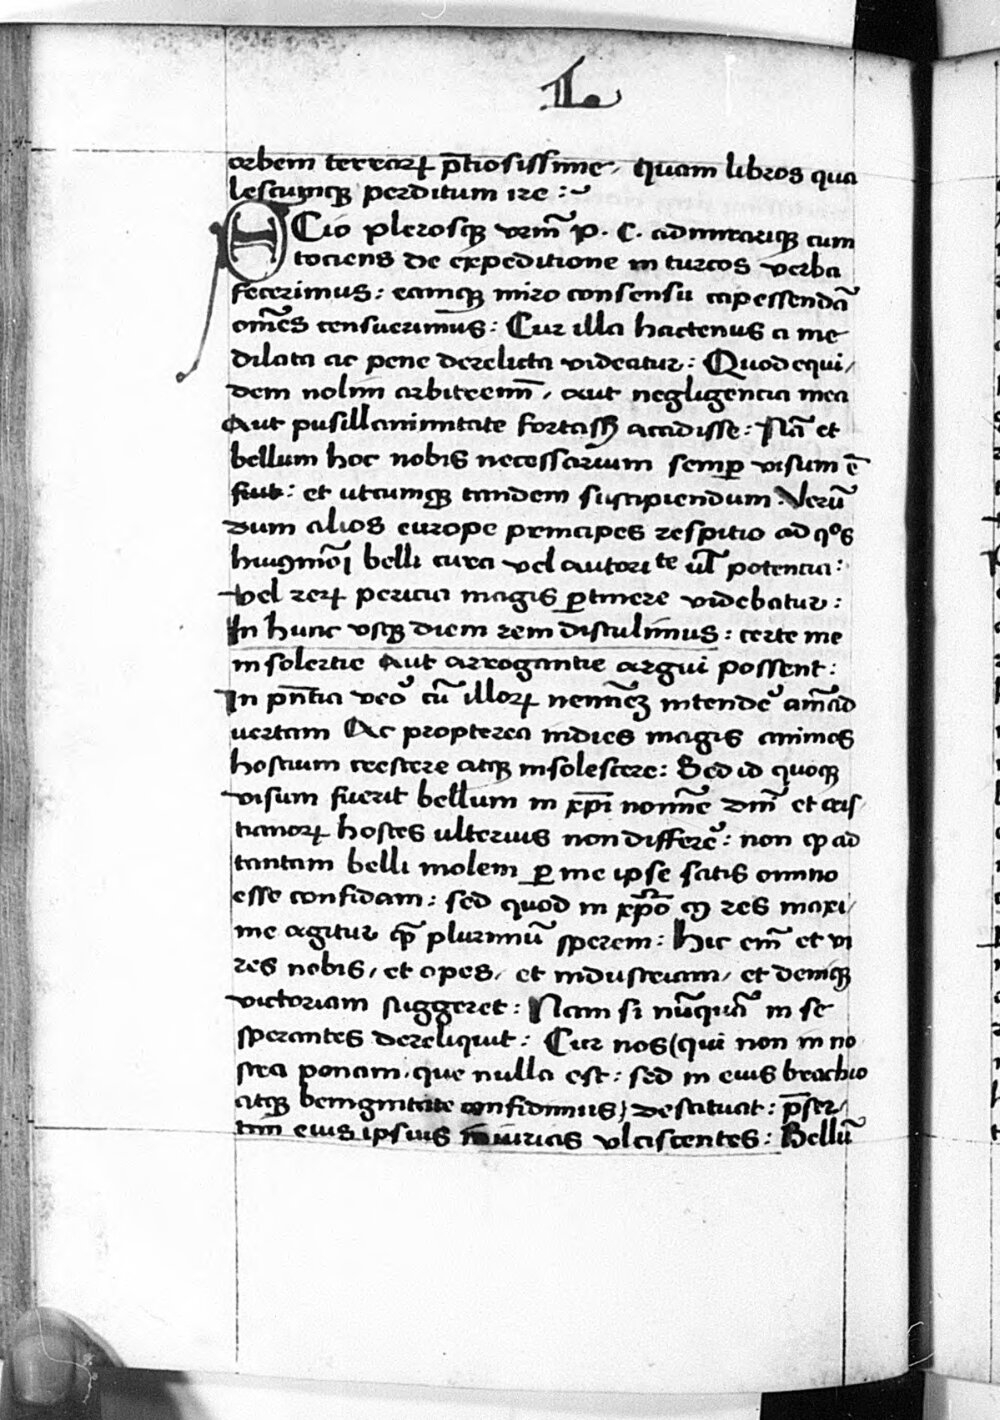 L
orbem terrarꝝ p̄tiosissime, quam libros qua
lescumqꝫ perditum ire:~
SCio plerosqꝫ vrm̄ P. C. admirariqꝫ cum
tociens de expeditione in turcos verba
fecerimus: eamqꝫ miro consensu capessendā
om̄es censuerimus: Cur illa hactenus a me
dilata ac pene derelicta videatur: Quod equi/
dem nolim arbitrem̄, aut negligencia mea
Aut pusillanimitate fortassꝫ accidisse: Nā et
bellum hoc nobis necessarium semꝑ visum ē
fuit: et utcumqꝫ tandem suscipiendum: Verū
dum alios europe principes respicio ad qͦs
huiꝰmōi belli cura vel autoritate ul̄ potencia:
vel rerꝝ pericia magis ꝑtinere videbatur:
In hunc vsqꝫ diem rem distulimus: certe me
insolertie Aut arrogantie argui possent:
In pn̄tia veo᷒ cū illorꝝ nemin̄eꝫ intende᷒ am̄ad
uertam Ac propterea indies magis animos
hostium crescere atqꝫ insolescere: Sed id quoqꝫ
visum fuerit bellum in xp̄i nomin̄e dm̄ et cris
tianorꝝ hostes ulterius non differe᷒: non ꝙ ad
tantam belli molem ꝑ me ipse satis omnino
esse confidam: sed quod in xp̄o cꝰ res maxi/
me agitur qꝫ plurimū sperem: Hic em̄ et vi
res nobis, et opes, et industriam, et deniqꝫ
victoriam suggeret: Nam si nūquā in se
sperantes dereliquit: Cur nos (qui non in no
stra ponam, que nulla est: sed in eius brachio
atqꝫ benignitate confidimus) destituat: p̄ser/
tim eius ipsius iniurias vlciscentes: Bellū